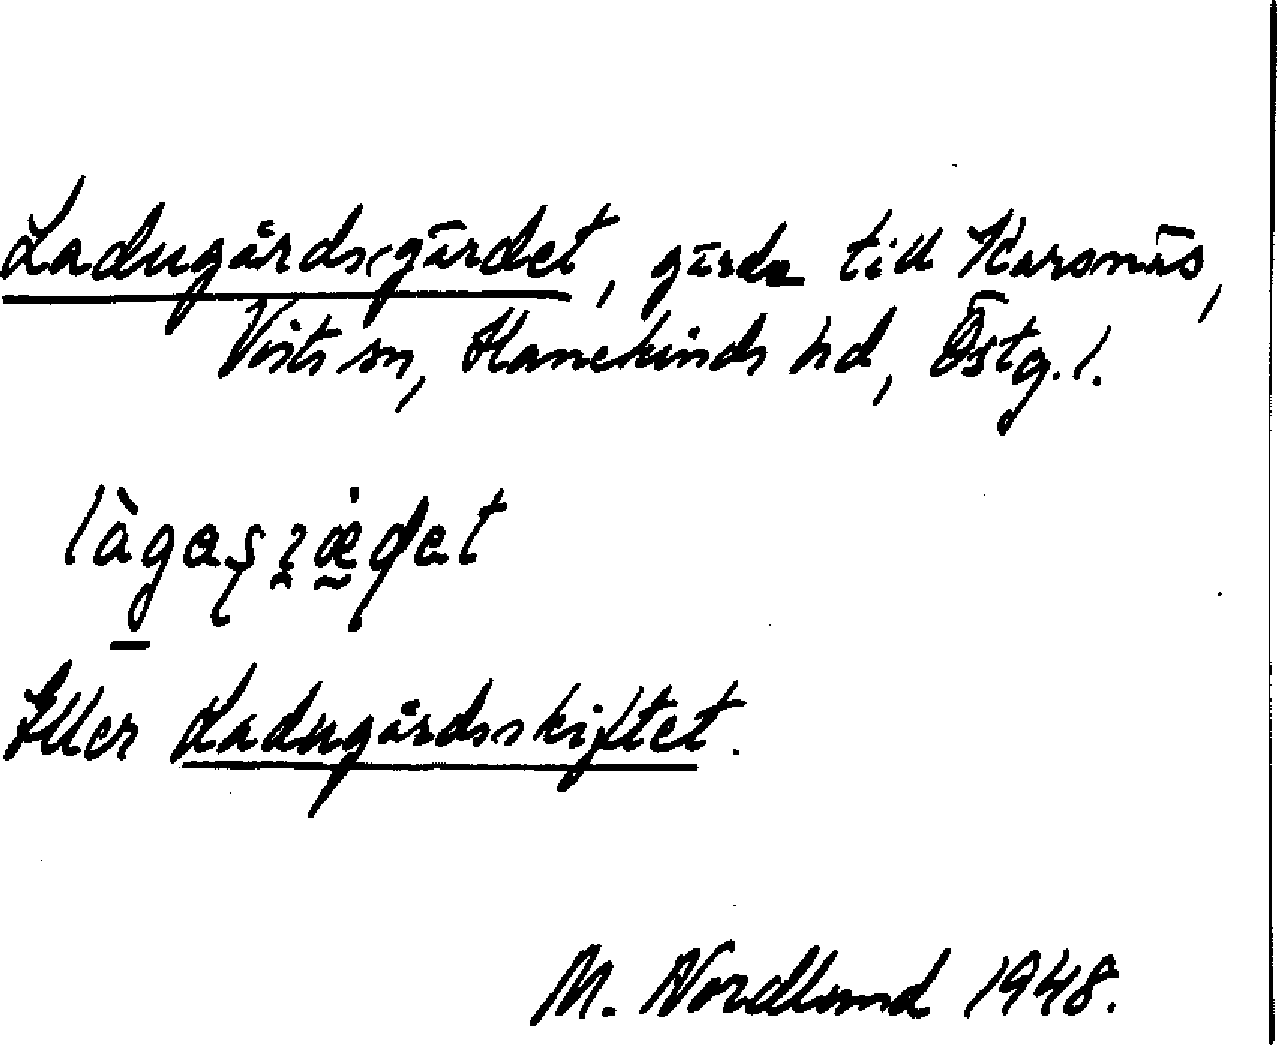 Ladugårdsgärdet, gärde till Karsnäs,
Vists sn, Hanekinds hd, Östg. l.
làgaṣɀæ̀ḍet
Eller Ladugårdsskiftet.
M. Nordlund 1948.